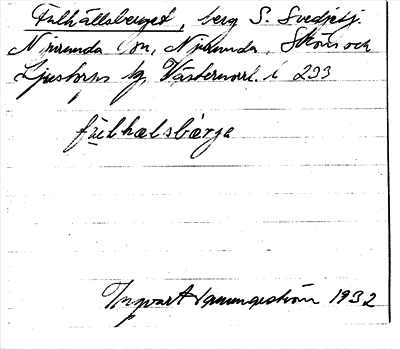 Fulhållsberget, berg S. Svedjetj.
Njurunda sn, Njurunda, Sköns och
Ljustorps tg Västernorrl. l 233
fu̱lhalsbärje
Ingvart Hammarström 1932